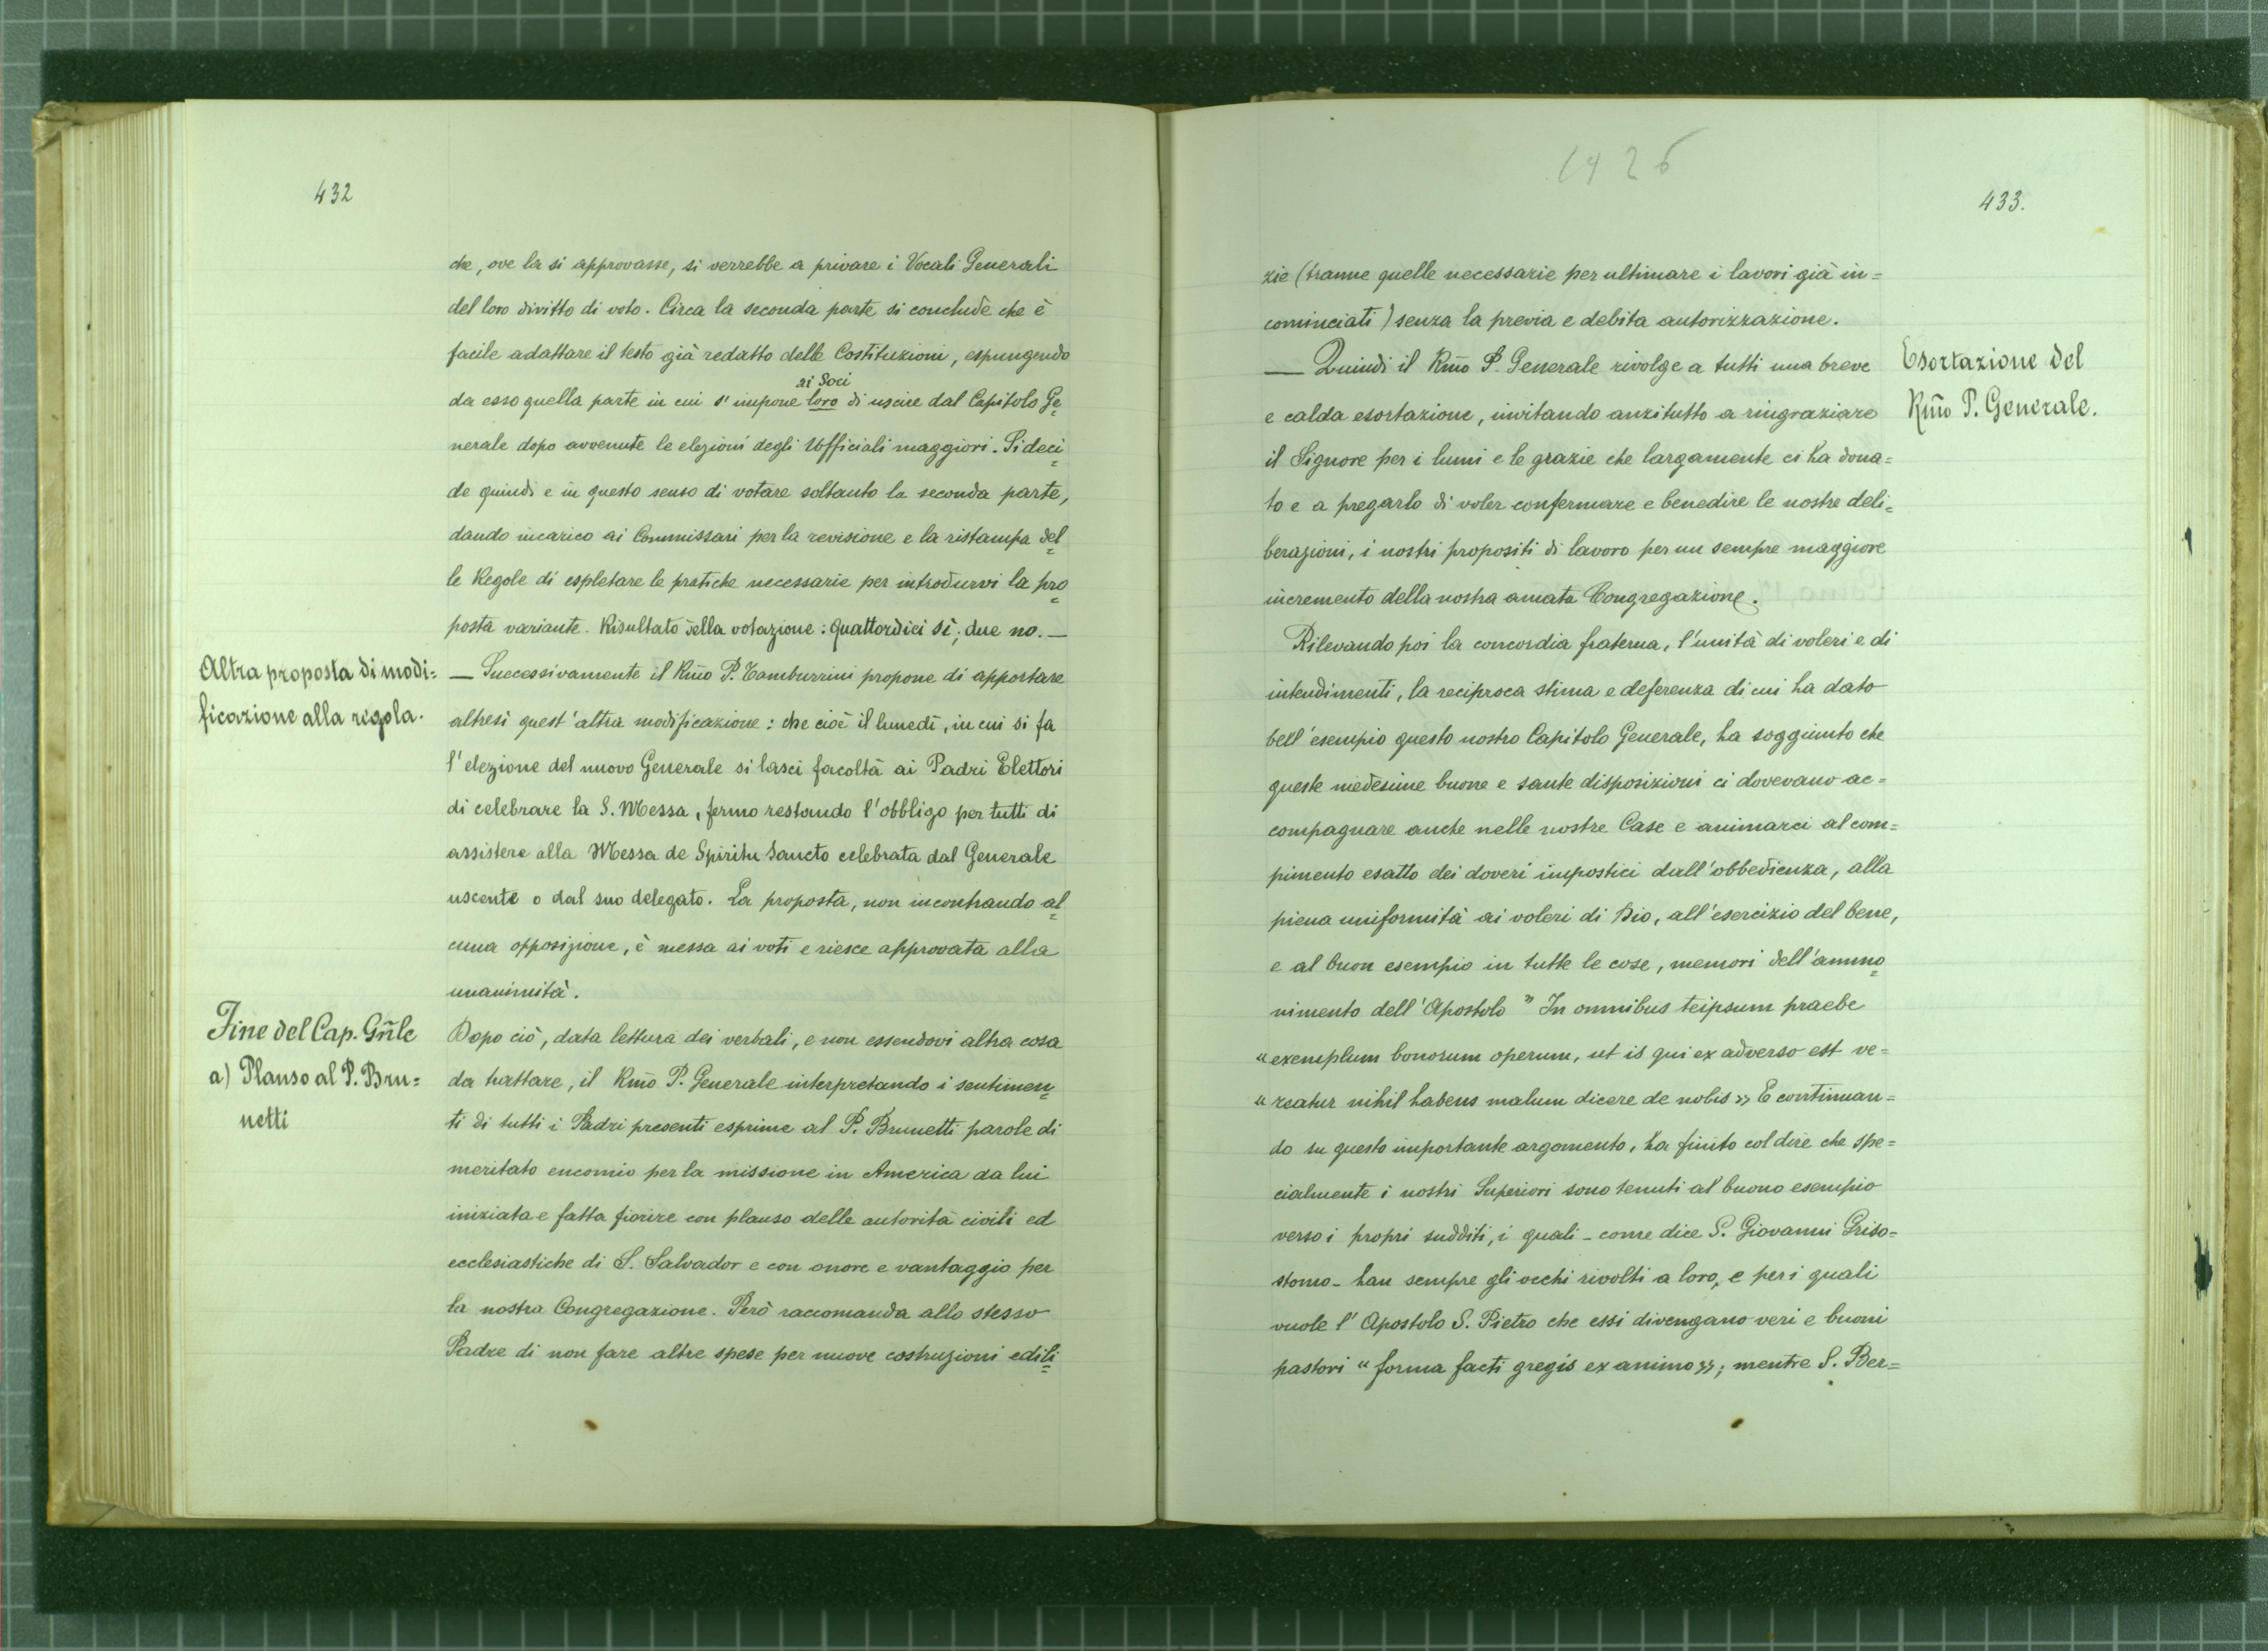 432
che, ove la si approvasse, si verrebbe a privare i Vocali Generali
del loro diritto di voto. Circa la seconda parte si conclude che è
facile adattare il testo già redatto delle Costituzioni, espungendo
ai Soci
da esso quella parte in cui s'impone loro di uscire dal Capitolo Ge=
nerale dopo avvenute le elezioni degli Ufficiali maggiori. Si deci=
de quindi e in questo senso di votare soltanto la seconda parte,
dando incarico ai Commissari per la revisione e la ristampa del=
le Regole di espletare le pratiche necessarie per introdurvi la pro=
posta variante. Risultato della votazione: quattordici sì; due no. —
Altra proposta di modi=
ficazione alla regola.
— Successivamente il Rm̃o P. Tamburrini propone di apportare
altresì quest'altra modificazione: che cioè il lunedì, in cui si fa
l'elezione del nuovo Generale si lasci facoltà ai Padri Elettori
di celebrare la S. Messa, fermo restando l'obbligo per tutti di
assistere alla Messa de Spiritu Sancto celebrata dal Generale
uscente o dal suo delegato. La proposta, non incontrando al=
cuna opposizione, è messa ai voti e riesce approvata alla
unanimità.
Fine del Cap. Gñle
a) Plauso al P. Bru=
netti
Dopo ciò, data lettura dei verbali, e non essendovi altra cosa
da trattare, il Rm̃o P. Generale interpretando i sentimen=
ti di tutti i Padri presenti esprime al P. Brunetti parole di
meritato encomio per la missione in America da lui
iniziata e fatta fiorire con plauso delle autorità civili ed
ecclesiastiche di S. Salvador e con onore e vantaggio per
la nostra Congregazione. Però raccomanda allo stesso
Padre di non fare altre spese per nuove costruzioni edili=
1426
433.
zie (tranne quelle necessarie per ultimare i lavori già in=
cominciati) senza la previa e debita autorizzazione.
Esortazione del
Rm̃o P. Generale.
— Quindi il Rm̃o P. Generale rivolge a tutti una breve
e calda esortazione, invitando anzitutto a ringraziare
il Signore per i lumi e le grazie che largamente ci ha dona=
to e a pregarlo di voler confermare e benedire le nostre deli=
berazioni, i nostri propositi di lavoro per un sempre maggiore
incremento della nostra amata Congregazione.
Rilevando poi la concordia fraterna, l'unità di voleri e di
intendimenti, la reciproca stima e deferenza di cui ha dato
bell'esempio questo nostro Capitolo Generale, ha soggiunto che
queste medesime buone e sante disposizioni ci dovevano ac=
compagnare anche nelle nostre Case e animarci al com=
pimento esatto dei doveri impostici dall'obbedienza, alla
piena uniformità ai voleri di Dio, all'esercizio del bene,
e al buon esempio in tutte le cose, memori dell'ammo=
nimento dell'Apostolo " In omnibus teipsum praebe
"exemplum bonorum operum, ut is qui ex adverso est ve=
"reatur nihil habens malum dicere de nobis" E continuan=
do su questo importante argomento, ha finito col dire che spe=
cialmente i nostri Superiori sono tenuti al buono esempio
verso i propri sudditi, i quali - come dice S. Giovanni Griso=
stomo - han sempre gli occhi rivolti a loro, e per i quali
vuole l'Apostolo S. Pietro che essi divengano veri e buoni
pastori "forma facti gregis ex animo"; mentre S. Ber=